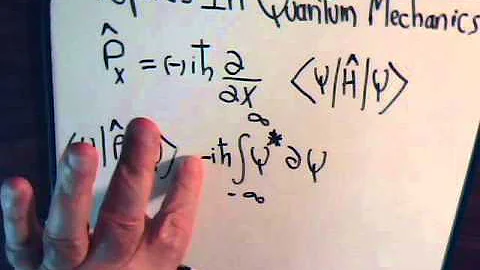 In Quantum Mechanics
P̂ₓ = (-)iℏ ∂/∂x ⟨Ψ|Ĥ|Ψ⟩
-iℏ ∫_{-∞}^{∞} Ψ* ∂Ψ